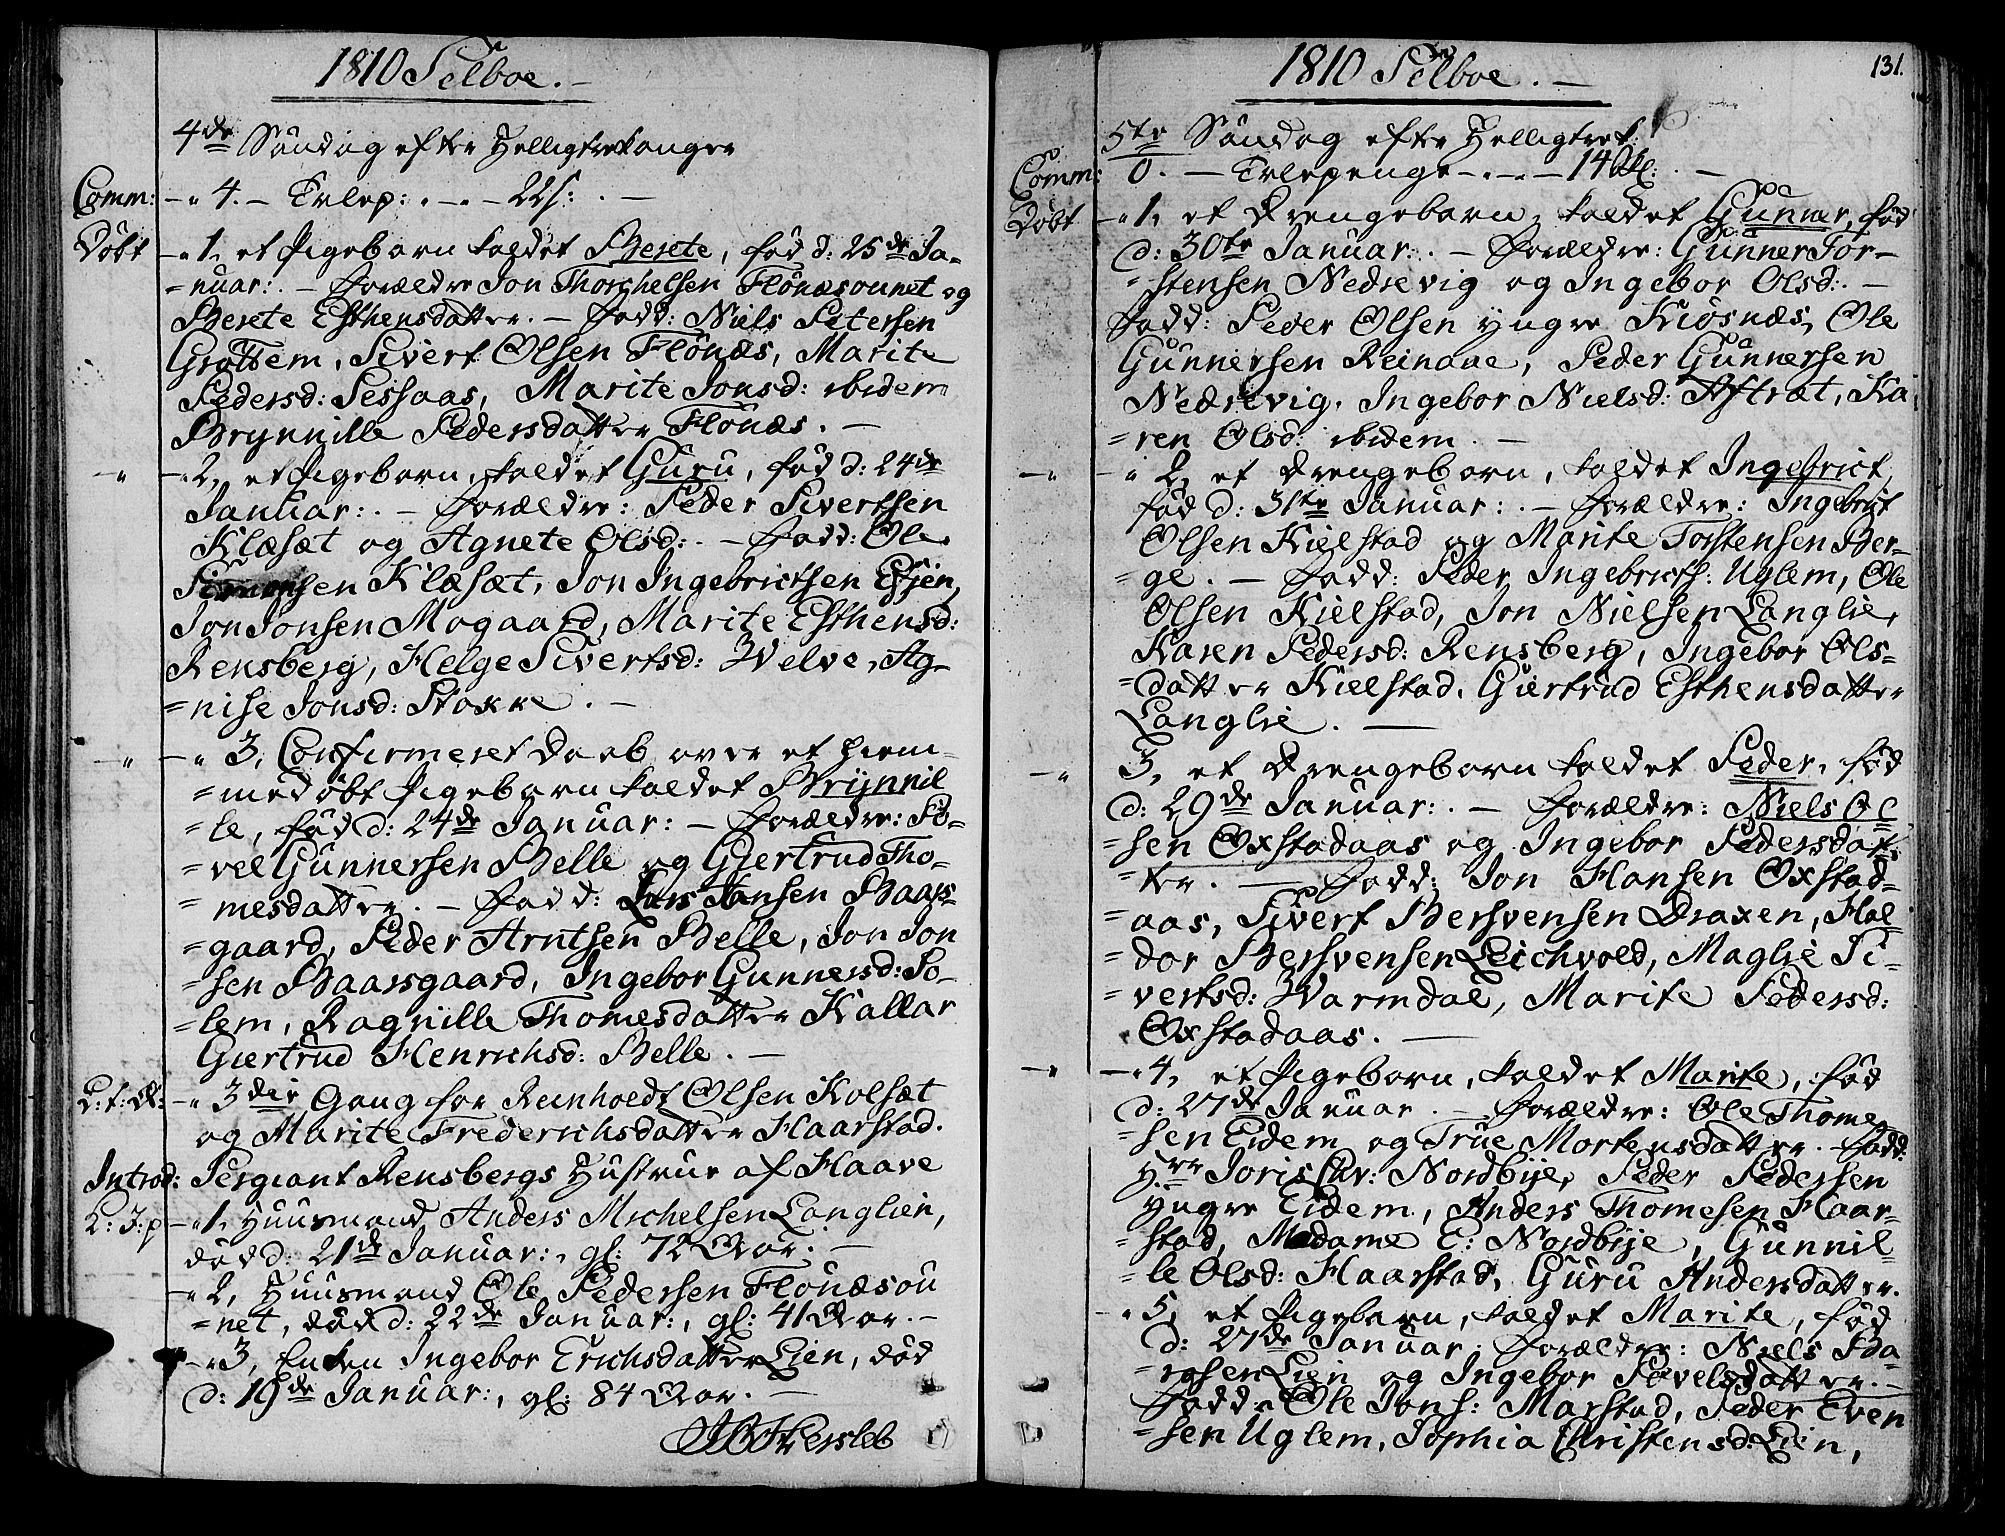 1810 Selboe. —
4de Søndag efter Helligtrekonger
Comm: — " 4. — Telep: . — . — 22 s: . —
Døbt — " 1, et Pigebarn kaldet Berete, fød d: 25de Ja-
=nuar: . — Forældre Jon Thorchelsen Flønæsounet og
Berete Esthensdatter. — Fadd: Niels Petersen
Grøttem, Sivert Olsen Flønæs, Marite
Pedersd: Sessaas, Marite Jonsd: ibidem
Brynnille Pedersdatter Flønæs. —
— " — " 2, et Pigebarn, kaldet Guru, fød d: 24de
Januar: . — Forældre: Peder Sivertsen
Klæsæt og Agnete Olsd: . — Fadd: Ole
Simonsen Klæsæt, Jon Ingebrictsen Evjen,
Jon Jonsen Mogaard, Marite Esthensd:
Rensberg, Helge Sivertsd: Welve, Ag-
=nise Jonsd: Stokke. —
— " — " 3, Confirmeret Daab over et hiem-
=medøbt Pigebarn kaldet Brynnil
=le, fød d: 24de Januar: — Forældre: Po-
=vel Gunnersen Belle og Gjertrud Tho-
=mesdatter. — Fadd: Lars Jonsen Baars-
=gaard, Peder Arntsen Belle, Jon Jon
=sen Baarsgaard, Ingebor Gunnersd: So-
=lem, Ragnille Thomesdatter Kallar
Giertrud Henrichsd: Belle. —
L: f: Æ: — " 3die Gang for Reinholdt Olsen Kolsæt
og Marite Frederichsdatter Haarstad.
Introd: Sergiant Rensbergs Hustrue af Haave
L: J: p — " 1, Huusmand Anders Michelsen Langlien,
død d: 21de Januar: , gl: 72 Aar. —
— " 2, Huusmand Ole Pedersen Flønæsou
=net, død d: 22de Januar: , gl: 41 Aar. —
— " 3, Enken Ingebor Erichsdatter Lien, død
d: 19de Januar: , gl: 84 Aar. —
1810 Selboe. —
131.
5te Søndag efter Helligtrek:
Comm: 0. — Telepenge — . — . — 14 s: . —
Døbt — " 1, et Drengebarn, kaldet Gunner, fød
d: 30te Januar: . — Forældre: Gunner Tor-
=stensen Nedrevig og Ingebor Olsd: . —
Fadd: Peder Olsen yngre Kiøsnæs, Ole
Gunnersen Reinaae, Peder Gunnersen
Nedrevig, Ingebor Nielsd: Aftræt, Ka
=ren Olsd: ibidem. —
— " — " 2, et Drengebarn, kaldet Ingebrict,
fød d: 31te Januar: . — Forældre: Ingebrict
Olsen Kielstad og Marite Torstensen Ber-
=ge. — Fadd: Peder Ingebricts: Uglem, Ole
Olsen Kielstad, Jon Nielsen Langlie,
Karen Pedersd: Rensberg, Ingebor Ols-
=datter Kielstad, Giertrud Esthensdatter
Langlie. —
— " 3, et Drengebarn kaldet Peder, fød
d: 29de Januar: . — Forældre: Niels Ol
=sen Oxstadaas og Ingebor Pedersdat-
=ter. — Fadd: Jon Hansen Oxstad-
=aas, Sivert Bersvensen Draxen, Hal
=dor Bersvensen Leichvold, Maglie Si-
=vertsd: Warmdal, Marite Pedersd:
Oxstadaas. —
— " — " 4, et Pigebarn, kaldet Marite, fød
d: 27de Januar. — Forældre: Ole Thome-
=sen Eidem og True Mortensdatter. — Fadd:
Hrr Joris Chr: Nordbye, Peder Pedersen
yngre Eidem, Anders Thomesen Haar-
=stad, Madame E: Nordbye, Gunnil-
=le Olsd: Haarstad, Guru Andersdatter.
— " 5, et Pigebarn, kaldet Marite, fød
d: 27de Januar. Forældre: Niels Ba-
=rosen Lien og Ingebor Povelsdatter. —
Fadd: Ole Jons: Marstad, Peder Even
=sen Uglem, Sophia Christensd: Lien,